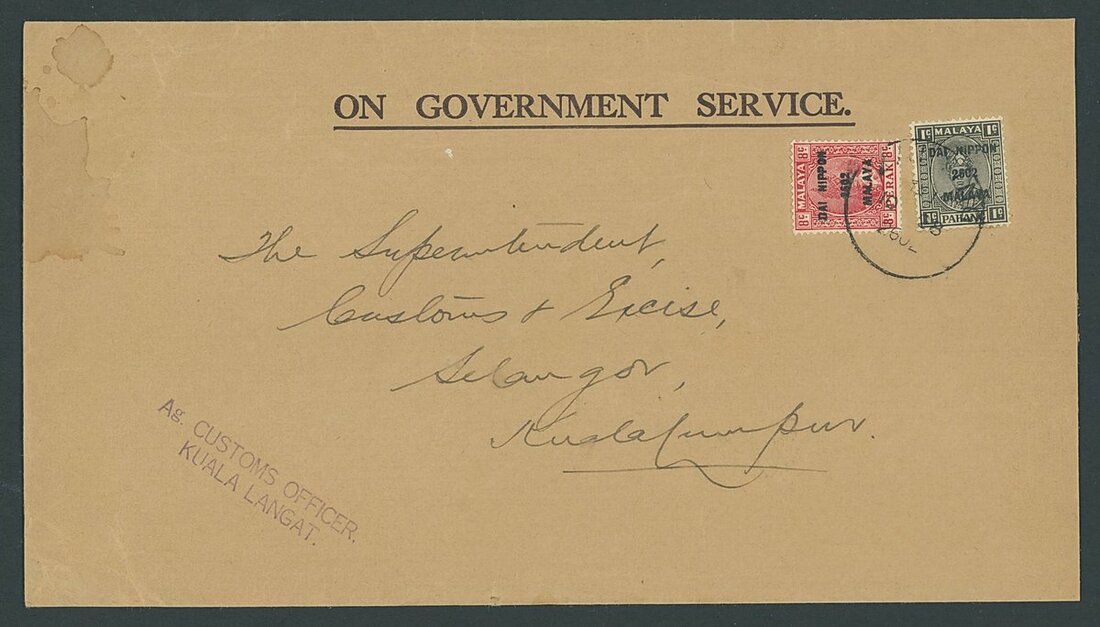 ON GOVERNMENT SERVICE.
8c MALAYA 8c
DAI NIPPON
2602
MALAYA
8c PERAK 8c
1c MALAYA 1c
DAI NIPPON
2602
MALAYA
1c PAHANG 1c
2602
The Superintendent,
Customs & Excise,
Selangor,
Kuala Lumpur.
Ag. CUSTOMS OFFICER.
KUALA LANGAT.